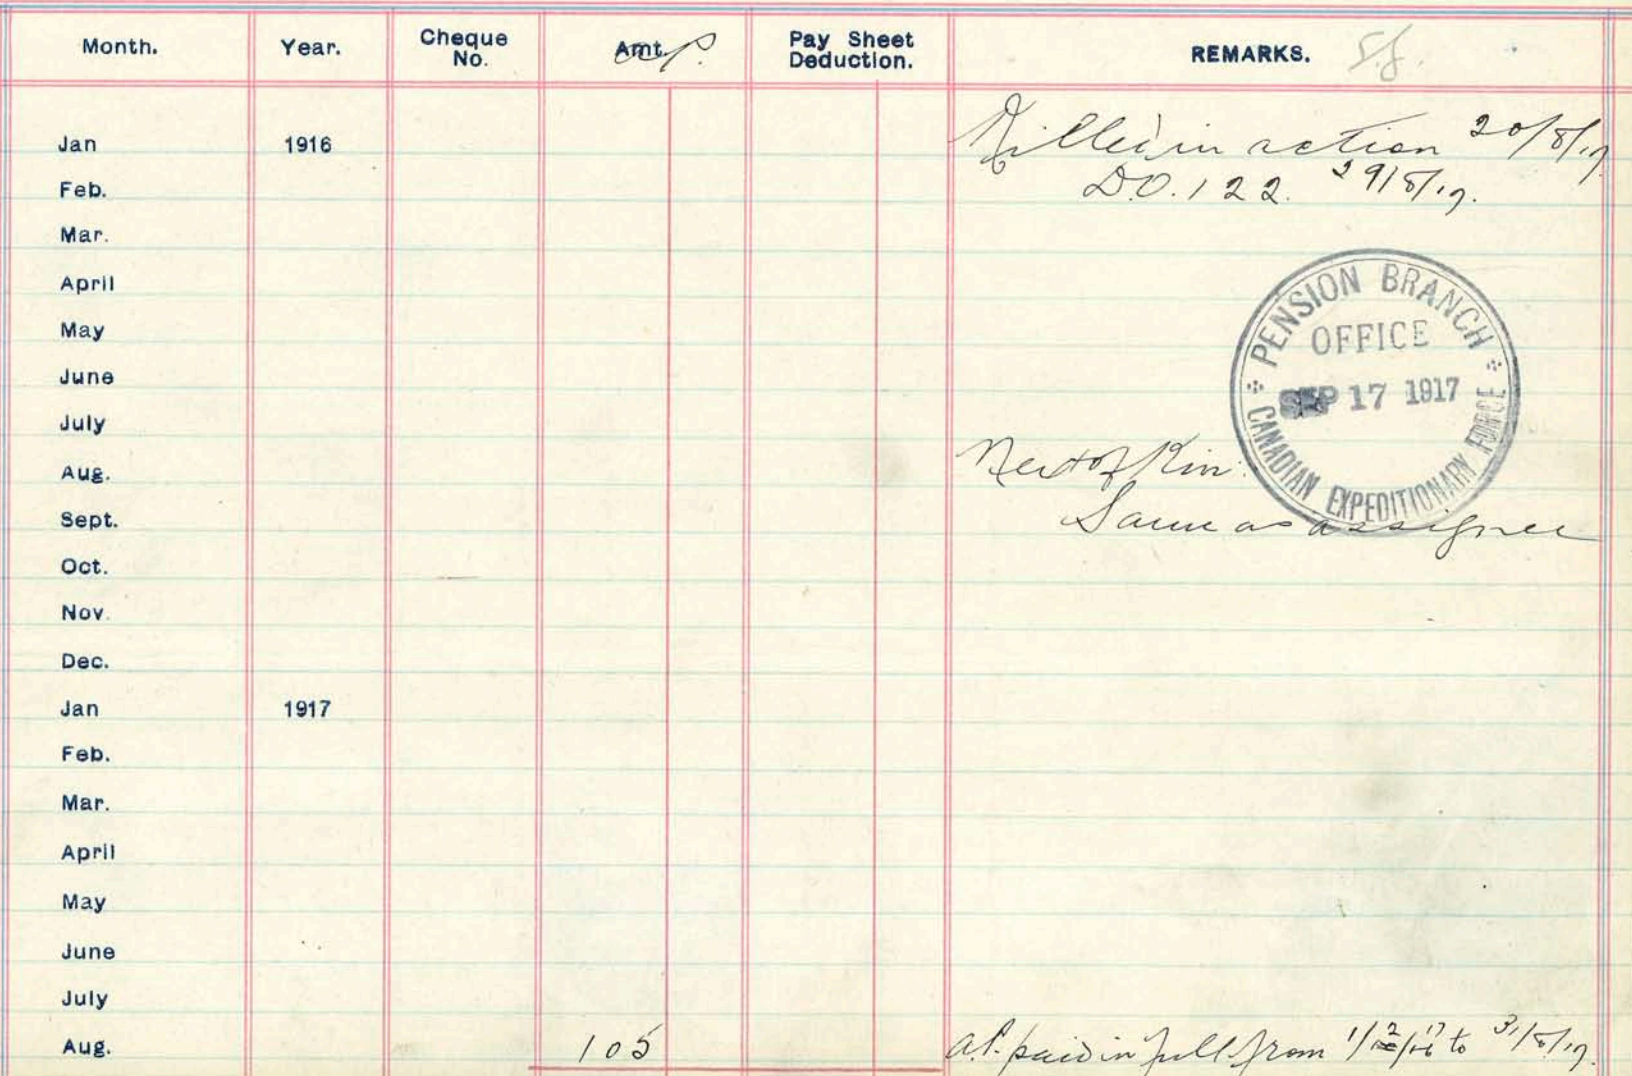 Month. Year. Cheque No. Amt. A.P. Pay Sheet Deduction. REMARKS.
Jan 1916 Killed in action 20/8/17
Feb. D.O. 122. 29/8/17.
Mar.
April
PENSION BRANCH
OFFICE
SEP 17 1917
CANADIAN EXPEDITIONARY FORCE
May
June
July
Aug. Next of Kin:
Sept. Same as assignee
Oct.
Nov.
Dec.
Jan 1917
Feb.
Mar.
April
May
June
July
Aug. 105 A.P. paid in full from 1/2/17 to 31/8/17.